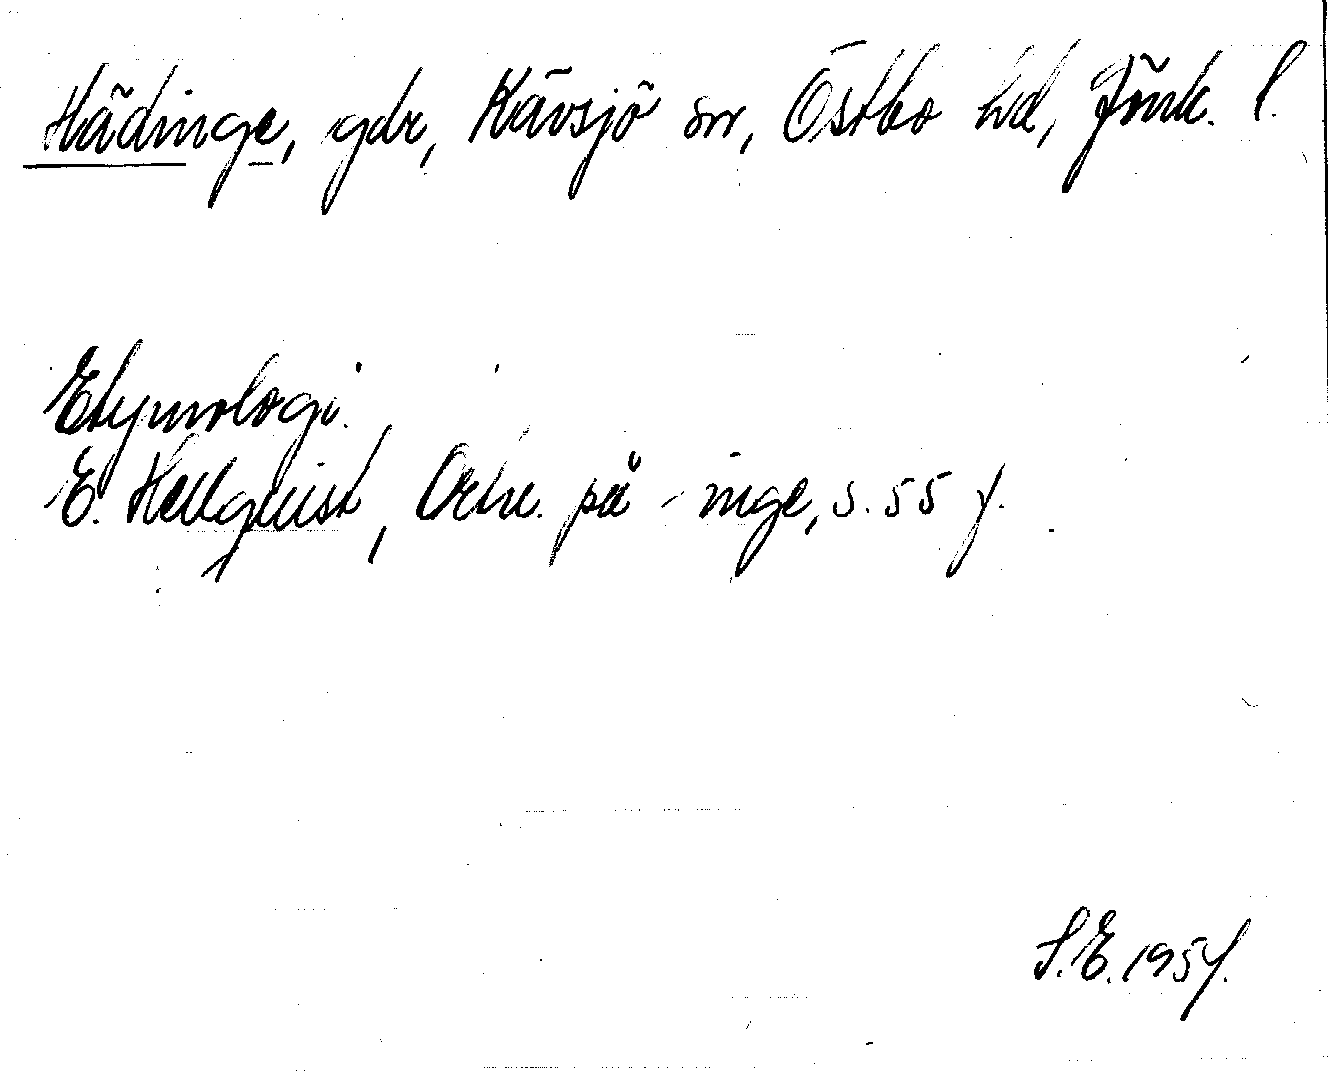 Hädinge, gdr, Kävsjö sn, Östbo hd, Jönk. l.
Etymologi.
E. Hellquist, Ortn. på -inge, s. 55 f.
S.E. 1954.